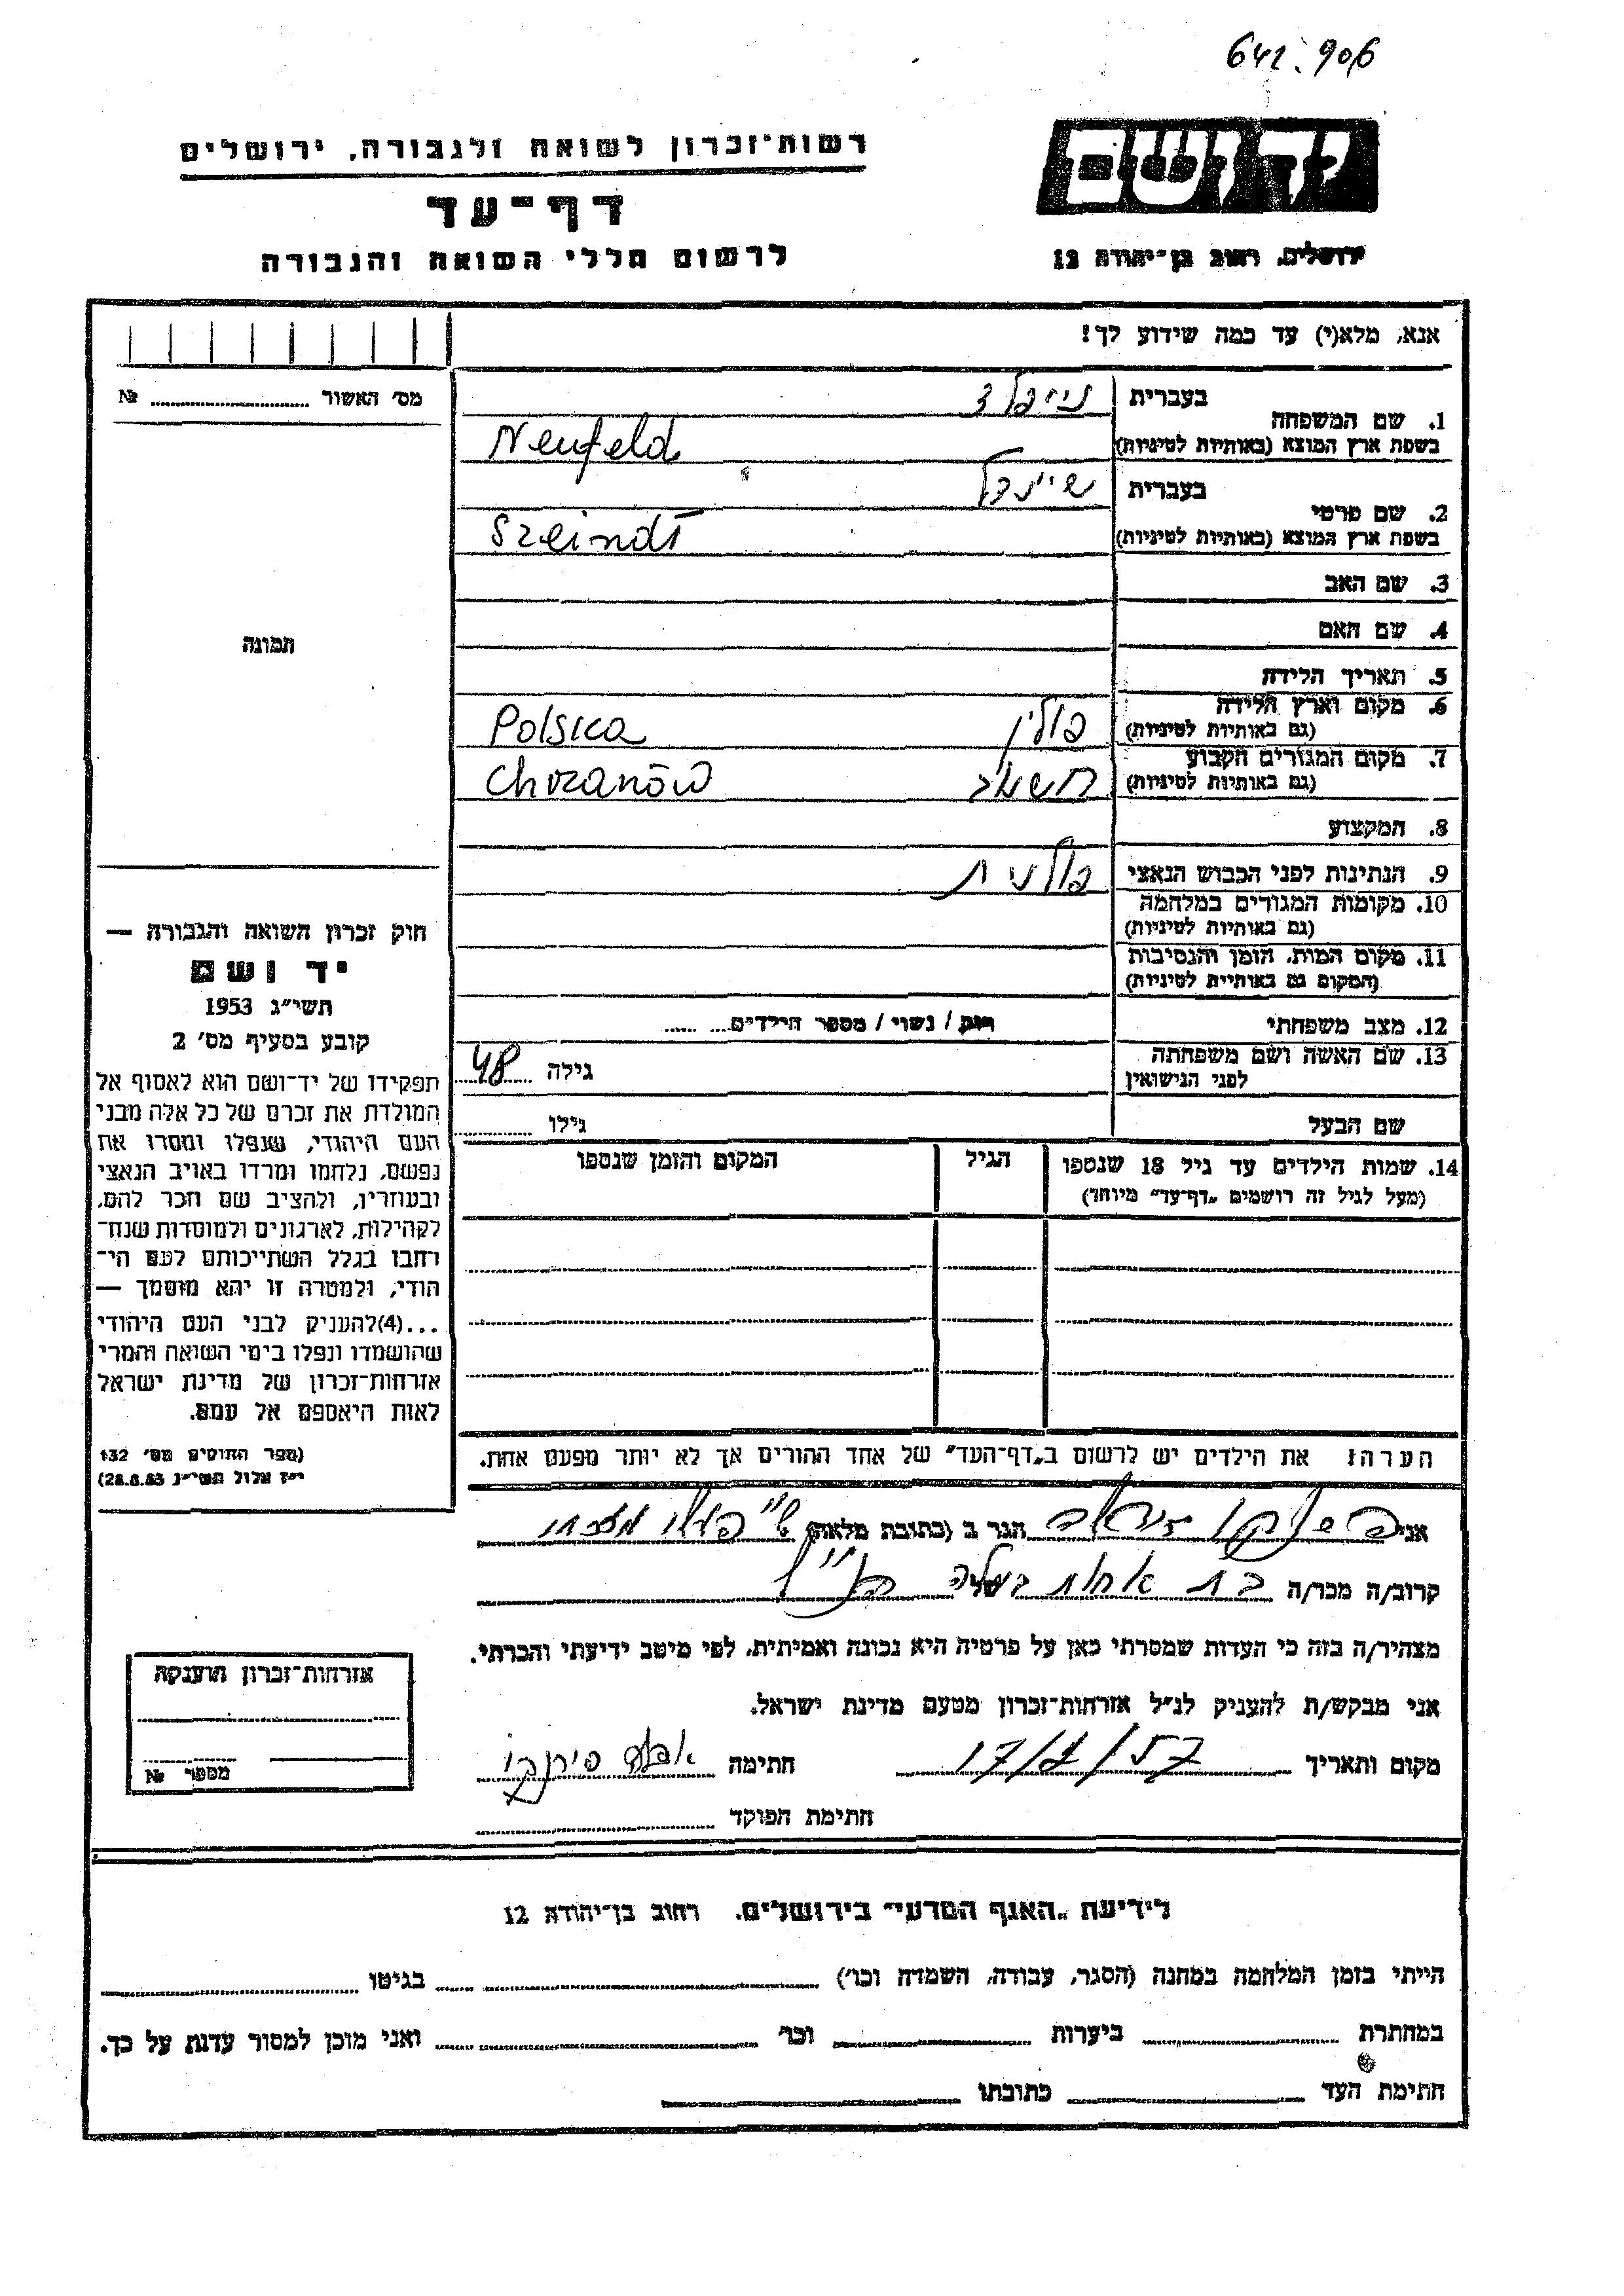 641.906
רשות־זכרון לשואה ולגבורה, ירושלים
יד ושם
דף־עד
לרשום חללי השואה והגבורה
ירושלים, רחוב בן־יהודה 12
אנא, מלא(י) עד כמה שידוע לך!
מס׳ האשור № 
1. שם המשפחה
בעברית נייפלד
בשפת ארץ המוצא (באותיות לטיניות) Neufeld
2. שם פרטי
בעברית שיינדל
בשפת ארץ המוצא (באותיות לטיניות) Szeindl
3. שם האב
4. שם האם
תמונה
5. תאריך הלידה
6. מקום וארץ הלידה
(גם באותיות לטיניות) פולין Polska
7. מקום המגורים הקבוע
(גם באותיות לטיניות) Chrzanów
8. המקצוע
9. הנתינות לפני הכבוש הנאצי פולנית
10. מקומות המגורים במלחמה
(גם באותיות לטיניות)
11. מקום המות, הזמן והנסיבות
(המקום גם באותיות לטיניות)
12. מצב משפחתי רווק / נשוי / מספר הילדים
13. שם האשה ושם משפחתה
לפני הנישואין גילה 48
שם הבעל גילו
14. שמות הילדים עד גיל 18 שנספו הגיל המקום והזמן שנספו
(מעל לגיל זה רושמים „דף־עד״ מיוחד)
חוק זכרון השואה והגבורה —
יד ושם
תשי״ג 1953
קובע בסעיף מס׳ 2
תפקידו של יד־ושם הוא לאסוף אל
המולדת את זכרם של כל אלה מבני
העם היהודי, שנפלו ומסרו את
נפשם, נלחמו ומרדו באויב הנאצי
ובעוזריו, ולהציב שם וזכר להם,
לקהילות, לארגונים ולמוסדות שנח־
רבו בגלל השתייכותם לעם הי־
הודי, ולמטרה זו יהא מוסמך —
...(4)להעניק לבני העם היהודי
שהושמדו ונפלו בימי השואה והמרי
אזרחות־זכרון של מדינת ישראל
לאות היאספם אל עמם.
(ספר החוקים מס׳ 132
י״ז אלול תשי״ג 28.8.53)
הערה: את הילדים יש לרשום ב„דף־העד״ של אחד ההורים אך לא יותר מפעם אחת.
אני הגר ב (כתובת מלאה)
קרוב/ה מכר/ה בת של
מצהיר/ה בזה כי העדות שמסרתי כאן על פרטיה היא נכונה ואמיתית, לפי מיטב ידיעתי והכרתי.
אני מבקש/ת להעניק לנ״ל אזרחות־זכרון מטעם מדינת ישראל.
מקום ותאריך חתימה
חתימת הפוקד
אזרחות־זכרון הוענקה
מספר №
לידיעת „האגף המדעי״ בירושלים, רחוב בן־יהודה 12
הייתי בזמן המלחמה במחנה (הסגר, עבודה, השמדה וכו׳) בגיטו
במחתרת ביערות וכו׳ ואני מוכן למסור עדות על כך.
חתימת העד כתובתו